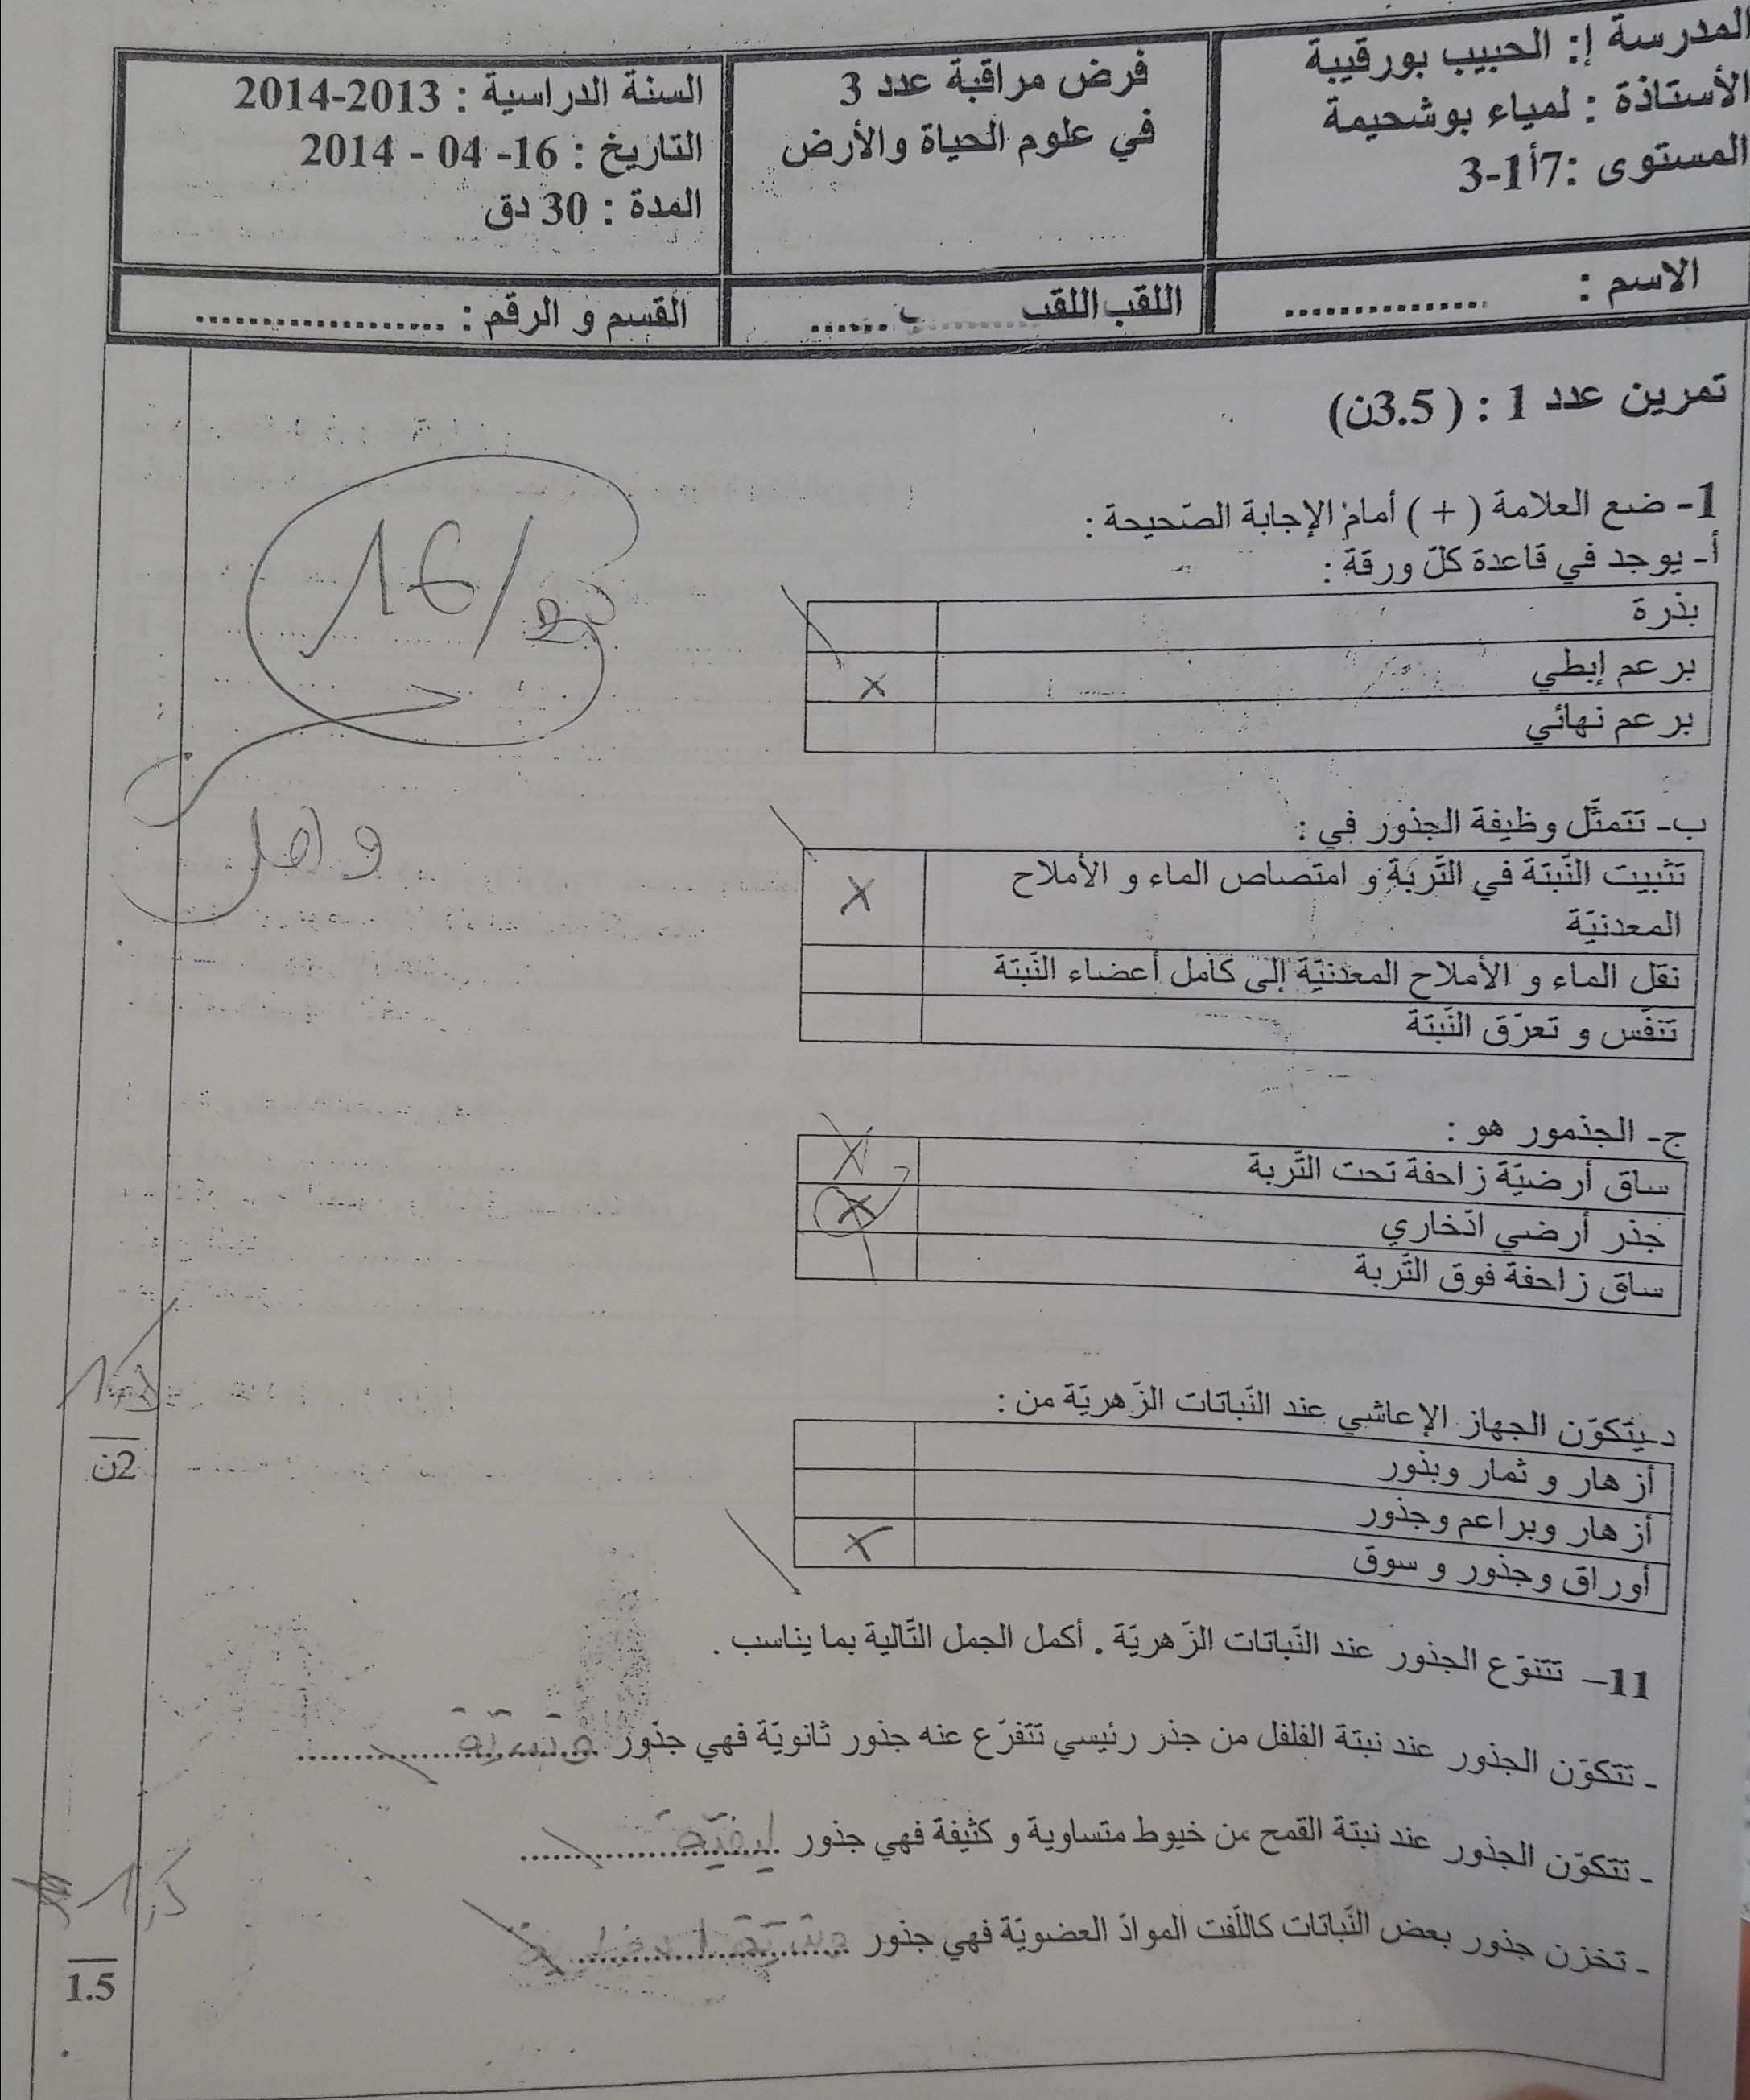 المدرسة إ: الحبيب بورقيبة
الأستاذة : لمياء بوشحيمة
المستوى :7أ1-3
فرض مراقبة عدد 3
في علوم الحياة والأرض
السنة الدراسية : 2013-2014
التاريخ : 16- 04 - 2014
المدة : 30 دق
الاسم : ...............
اللقب اللقب
القسم و الرقم : ...................
تمرين عدد 1 : ( 3.5ن)
16/20
واصل
1- ضع العلامة ( + ) أمام الإجابة الصّحيحة :
أ- يوجد في قاعدة كلّ ورقة :
بذرة
برعم إبطي x
برعم نهائي
ب- تتمثّل وظيفة الجذور في :
تثبيت النّبتة في التّربة و امتصاص الماء و الأملاح x
المعدنيّة
نقل الماء و الأملاح المعدنيّة إلى كامل أعضاء النّبتة
تنفّس و تعرّق النّبتة
ج- الجذمور هو :
ساق أرضيّة زاحفة تحت التّربة x
جذر أرضي ادّخاري x
ساق زاحفة فوق التّربة
د-يتكوّن الجهاز الإعاشي عند النّباتات الزّهريّة من :
أزهار و ثمار وبذور
أزهار وبراعم وجذور
أوراق وجذور و سوق x
2ن
11– تتنوّع الجذور عند النّباتات الزّهريّة . أكمل الجمل التّالية بما يناسب .
- تتكوّن الجذور عند نبتة الفلفل من جذر رئيسي تتفرّع عنه جذور ثانويّة فهي جذور وتديّة
- تتكوّن الجذور عند نبتة القمح من خيوط متساوية و كثيفة فهي جذور ليفيّة
- تخزن جذور بعض النّباتات كاللّفت الموادّ العضويّة فهي جذور
1.5